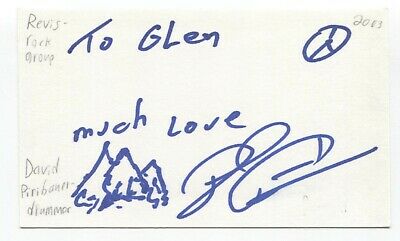 Revis-
rock
group
To GLen
2003
much Love
David
Piribauer-
drummer